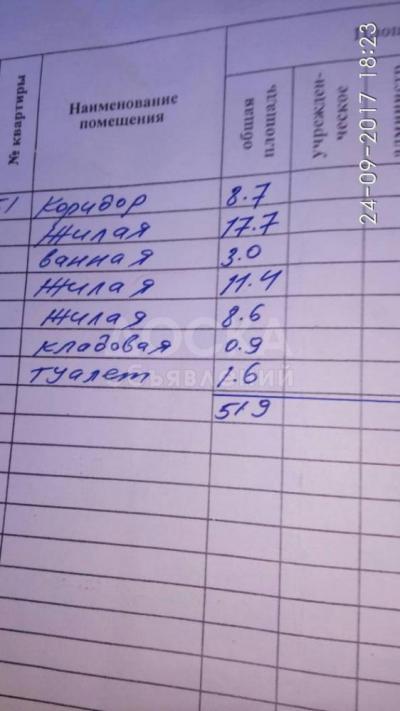 24-09-2017 18:23
№ квартиры
Наименование
помещения
общая
площадь
учрежден-
ческое
Коридор 8.7
Жилая 17.7
ванная 3.0
Жилая 11.4
Жилая 8.6
кладовая 0.9
туалет 1.6
519
ДОСКА
объявлений